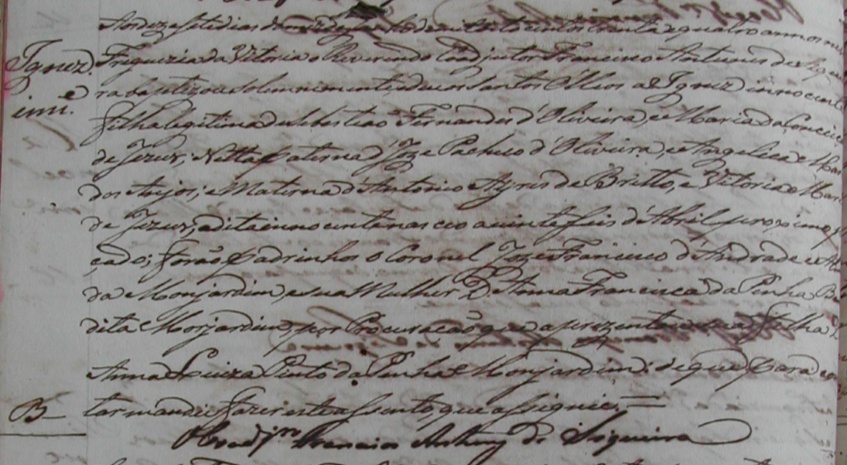 Aos dezasete dias de mil oito centos trinta e quatro annos
Ignez Freguezia da Vitoria o Reverendo Coadjutor Francisco Antunes de Siquei
ra baptizou solemnemente, e deu os Santos Olleos a Ignez innocente
inn.e filha legitima de Fernandes d'Oliveira, e Maria da Concei
de Jezus; Netta paterna de Joze Pacheco d'Oliveira, e Angelica Mar
dos Anjos; e Materna d'Antonio Ayres de Britto, e Vitoria Mar
de Jezus; a dita innocente nasceo a vinte seis d'Abril proximo
çado; forão padrinhos o Coronel Joze Francisco d'Andrade e Al
da Monjardim, e sua Mulher D. Anna Francisca da Penha B
dita Monjardim, por Procuração que aprezentou sua filha D.
Anna Luiza Pinto da Penha Monjardim: de que para cons
B tar mandei fazer este assento que assignei.
O Coadj.or Francisco Antunes de Siqueira